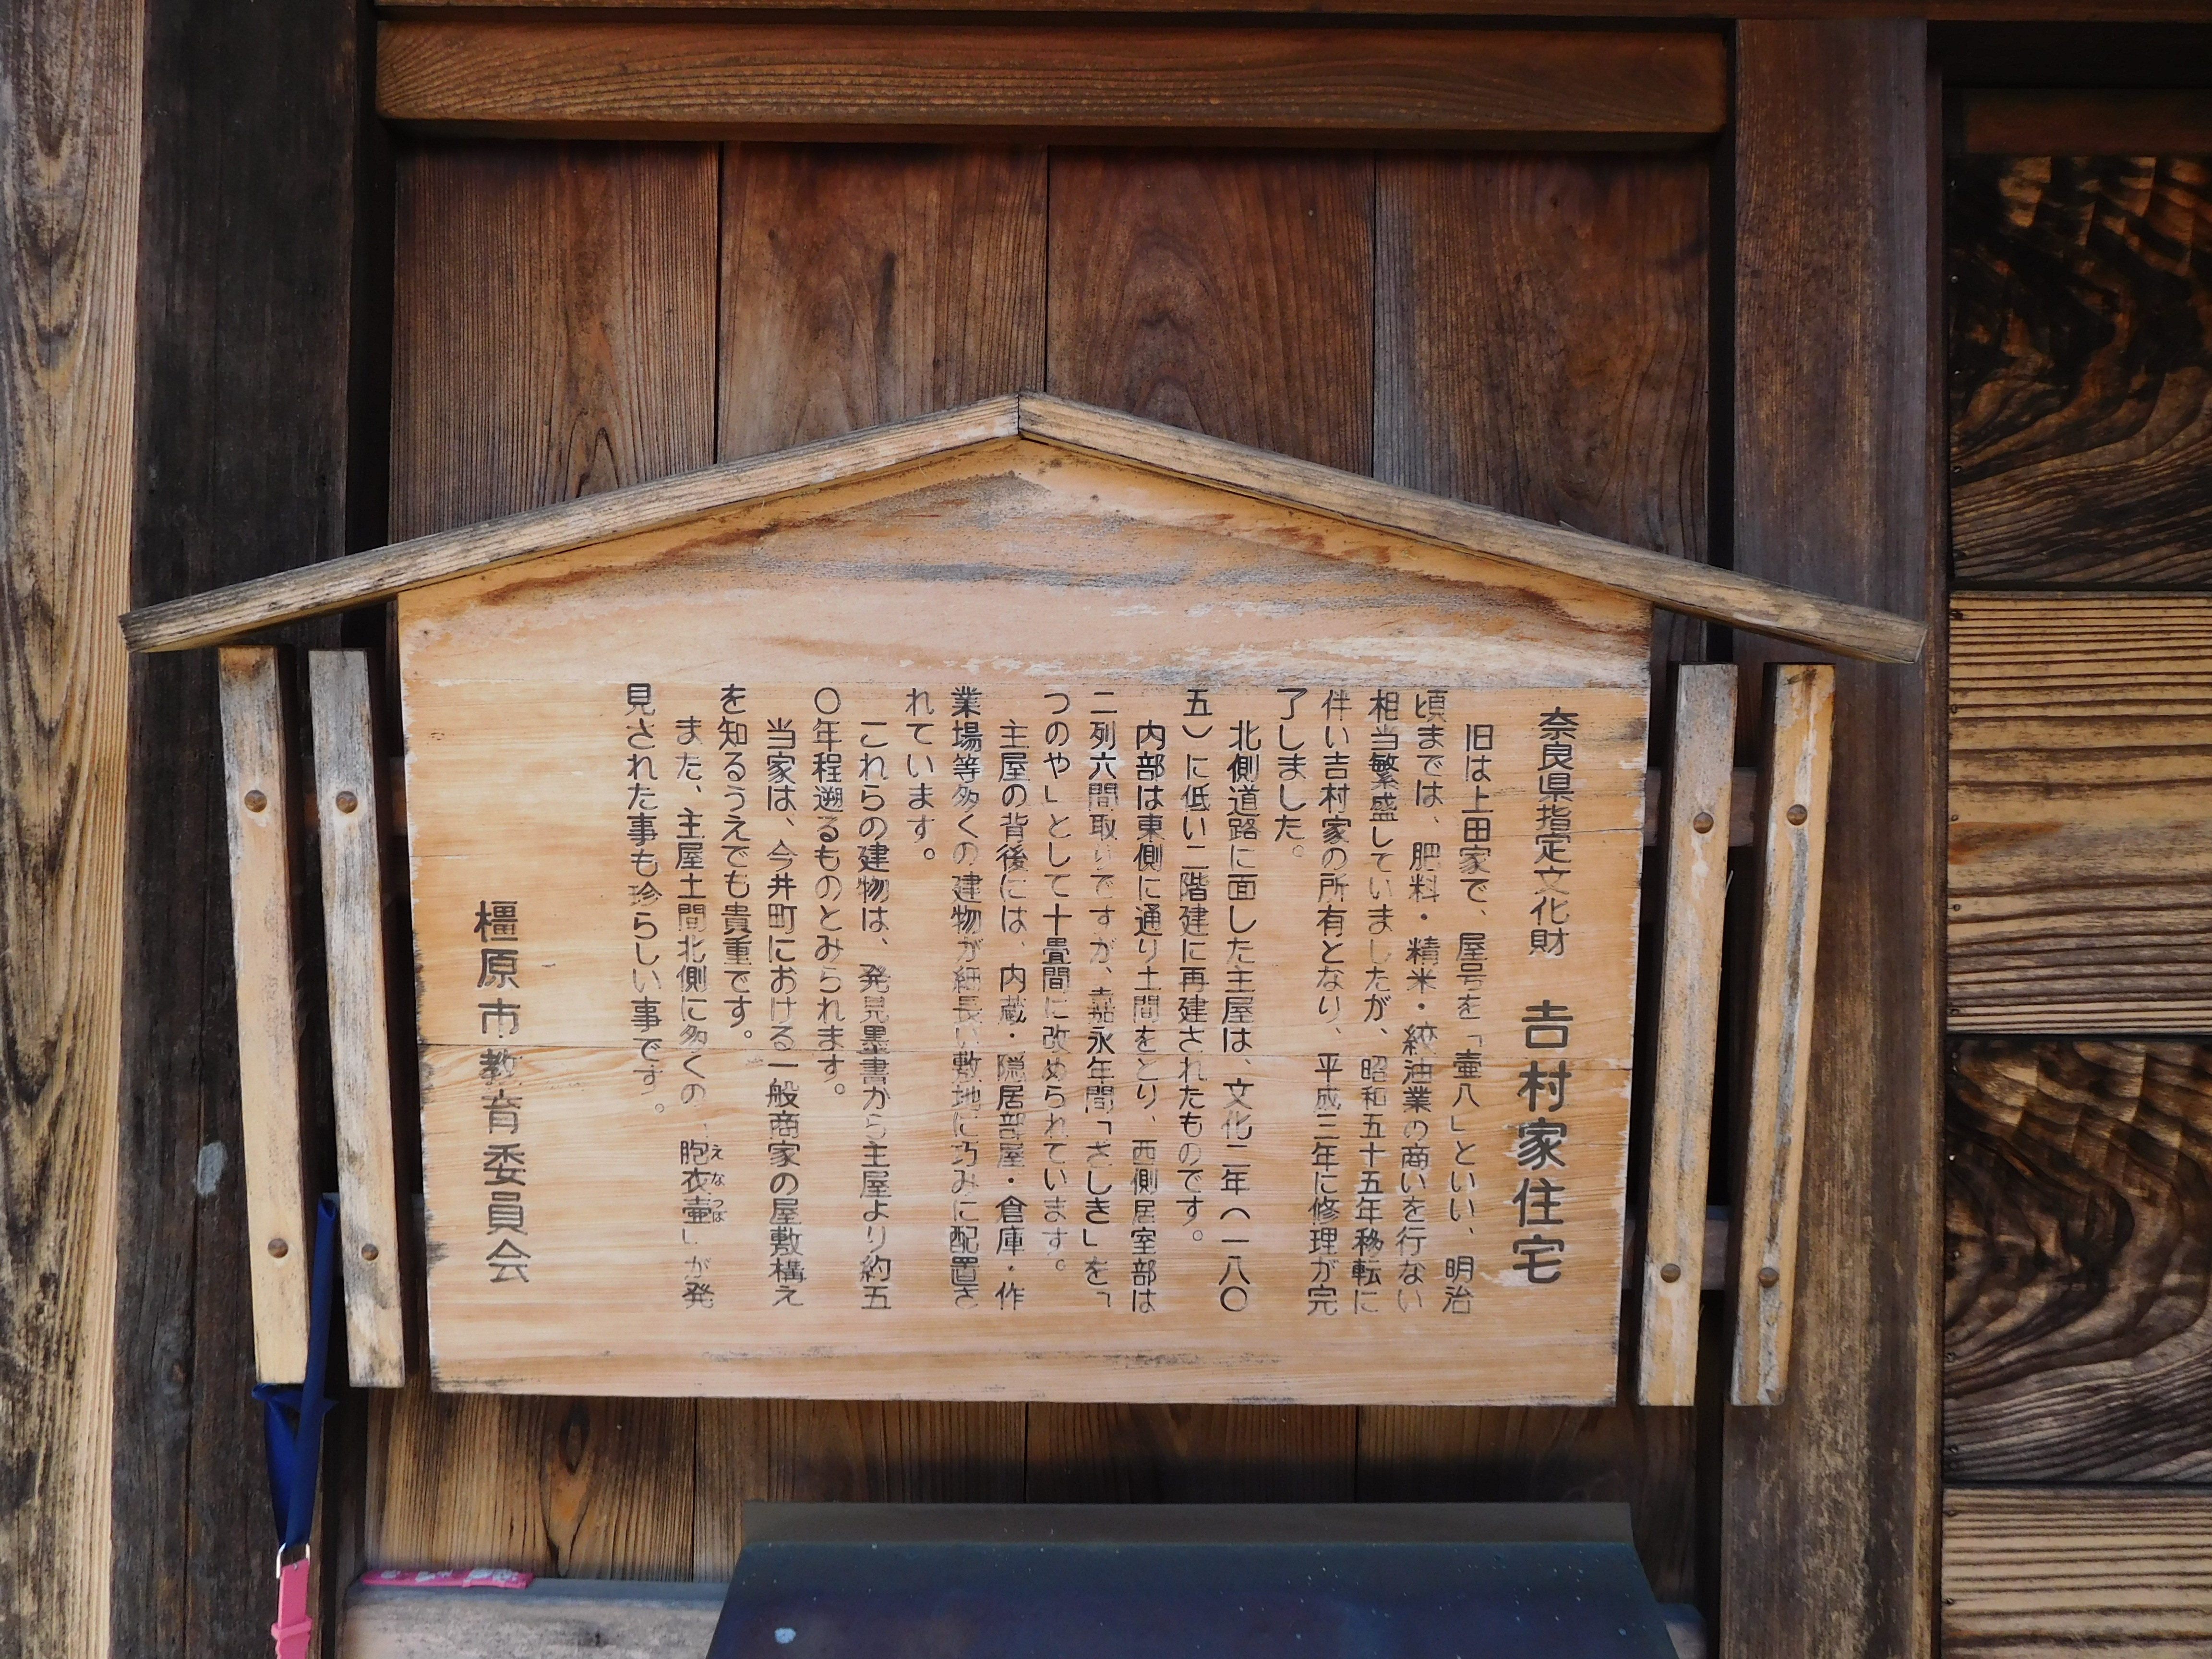 奈良県指定文化財　吉村家住宅
旧は上田家で、屋号を「壷八」といい、明治
頃までは、肥料・精米・絞油業の商いを行ない
相当繁盛していましたが、昭和五十五年移転に
伴い吉村家の所有となり、平成三年に修理が完
了しました。
北側道路に面した主屋は、文化二年（一八〇
五）に低い二階建に再建されたものです。
内部は東側に通り土間をとり、西側居室部は
二列六間取りですが、嘉永年間「ざしき」を「
つのや」として十畳間に改められています。
主屋の背後には、内蔵・隠居部屋・倉庫・作
業場等多くの建物が細長い敷地に巧みに配置さ
れています。
これらの建物は、発見墨書から主屋より約五
〇年程遡るものとみられます。
当家は、今井町における一般商家の屋敷構え
を知るうえでも貴重です。
また、主屋土間北側に多くの、胞衣壷」が発
えなつぼ
見された事も珍らしい事です。
橿原市教育委員会